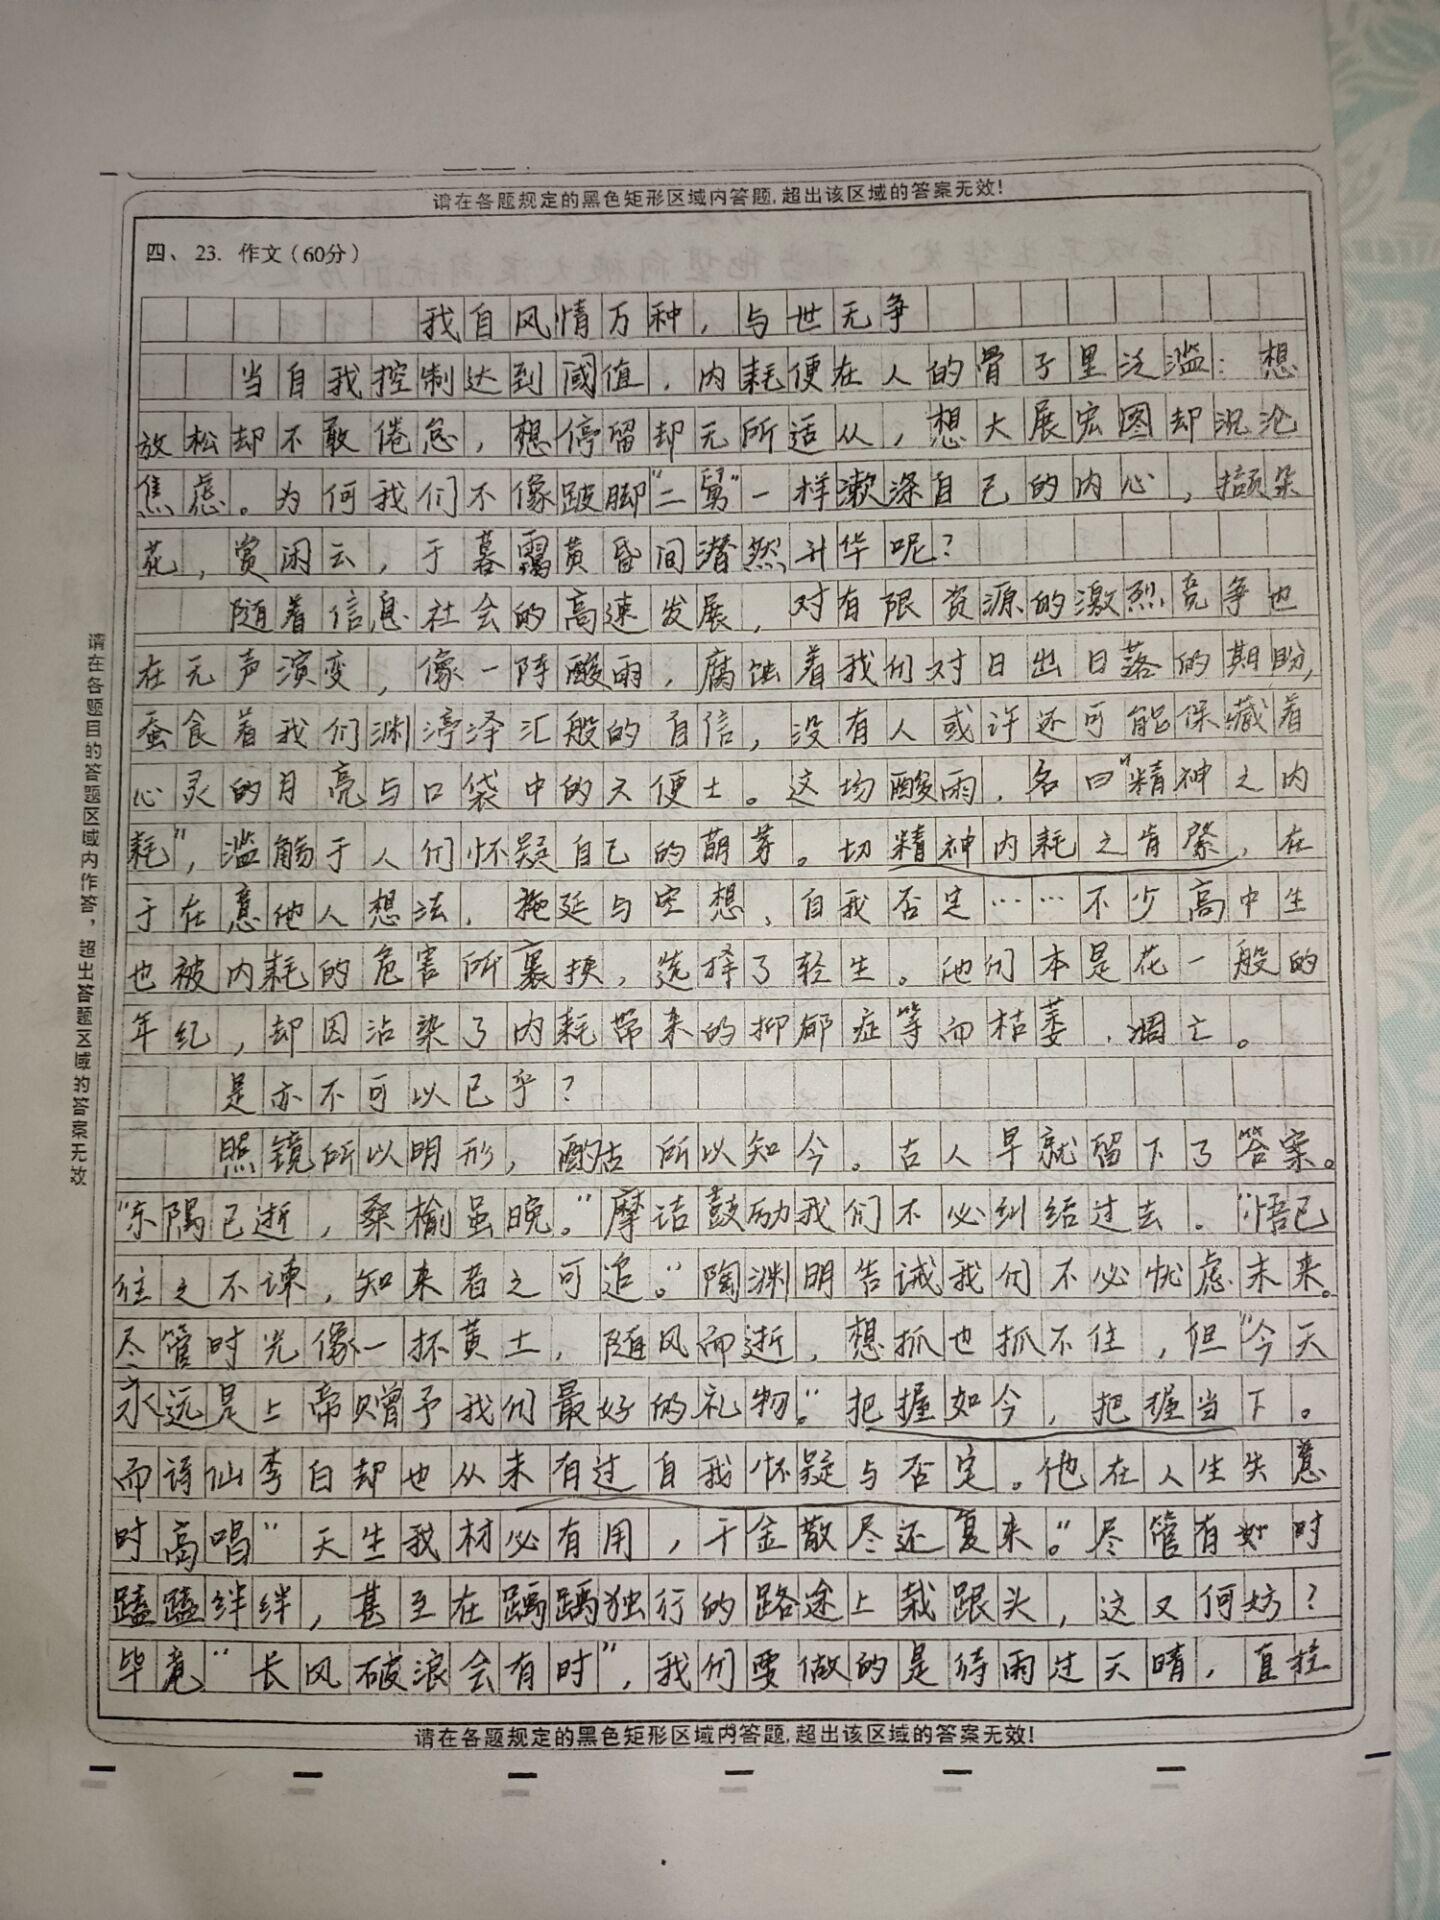 请在各题规定的黑色矩形区域内答题,超出该区域的答案无效!
四、23. 作文(60分)
我自风情万种，与世无争
当自我控制达到阈值，内耗便在人的骨子里泛滥：想
放松却不敢倦怠，想停留却无所适从，想大展宏图却沉沦
焦虑。为何我们不像跛脚“二舅”一样漱涤自己的内心，撷朵
花，赏闲云，于暮霭黄昏间潜然升华呢？
随着信息社会的高速发展，对有限资源的激烈竞争也
在无声演变，像一阵酸雨，腐蚀着我们对日出日落的期盼，
蚕食着我们渊渟泽汇般的自信，没有人或许还可能保藏着
心灵的月亮与口袋中的六便士。这场酸雨，名曰“精神之内
耗”，滥觞于人们怀疑自己的萌芽。切精神内耗之肯綮，在
于在意他人想法，拖延与空想，自我否定……不少高中生
也被内耗的危害所裹挟，选择了轻生。他们本是花一般的
年纪，却因沾染了内耗带来的抑郁症等而枯萎，凋亡。
是亦不可以已乎？
照镜所以明形，酌古所以知今。古人早就留下了答案。
“东隅已逝，桑榆虽晚。”摩诘鼓励我们不必纠结过去。“悟已
往之不谏，知来者之可追。”陶渊明告诫我们不必忧虑未来。
尽管时光像一抔黄土，随风而逝，想抓也抓不住，但“今天
永远是上帝赠予我们最好的礼物。”把握如今，把握当下。
而诗仙李白却也从未有过自我怀疑与否定。他在人生失意
时高唱“天生我材必有用，千金散尽还复来。”尽管有如时
磕磕绊绊，甚至在踽踽独行的路途上栽跟头，这又何妨？
毕竟“长风破浪会有时”，我们要做的是待雨过天晴，直挂
请在各题规定的黑色矩形区域内答题,超出该区域的答案无效!
请在各题目的答题区域内作答，超出答题区域的答案无效